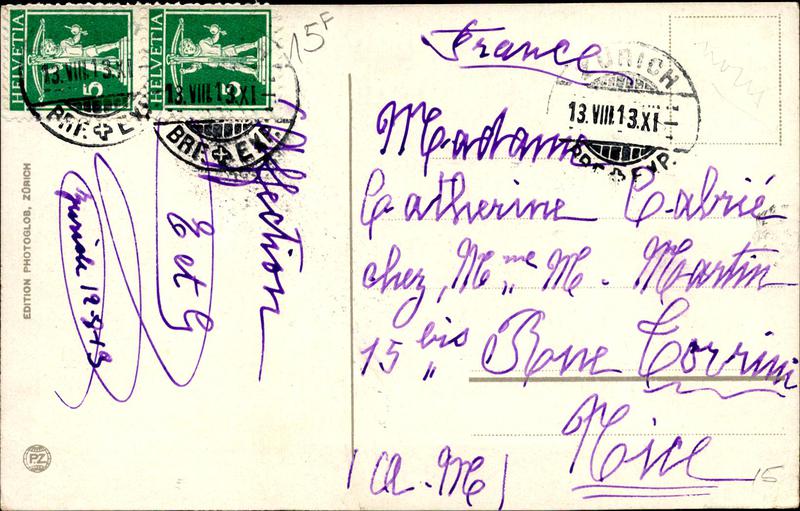 HELVETIA
5
HELVETIA
5
13.VIII.13.XI
BRF. EXP.
13.VIII.13.XI
BRF. EXP.
15F
ZÜRICH
13.VIII.13.XI
BRF. EXP.
EDITION PHOTOGLOB, ZÜRICH
PZ
Affection
E et G
Zurich 12-8-13
France
Madame
Catherine Cabrié
chez, Mme M. Martin
15 bis Rue Torrini
Nice
(A.M)
15